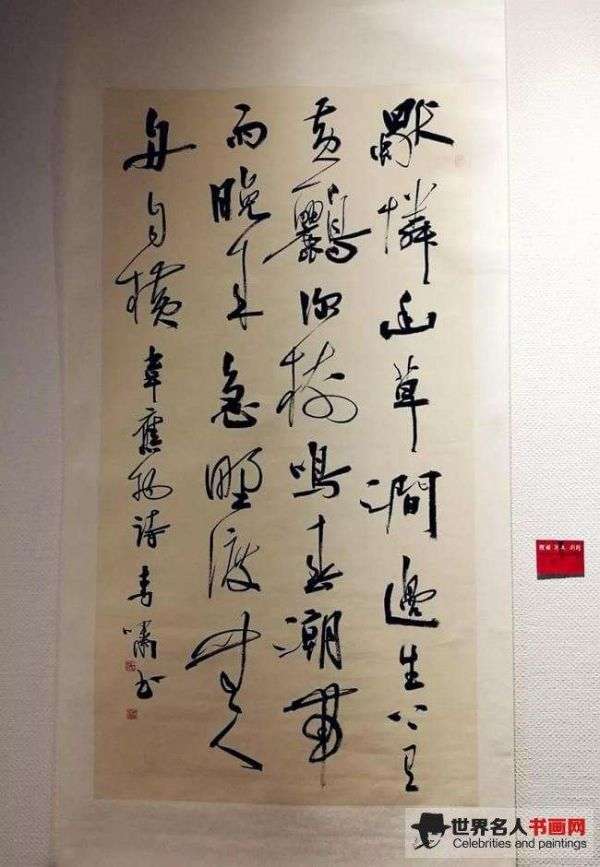 獨憐幽草澗邊生上有
黃鸝深樹鳴春潮帶
雨晚來急野渡無人
舟自横 韋應物詩 嘯书
世界名人书画网
Celebrities and paintings